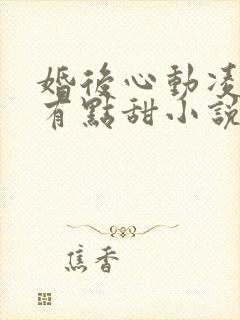 婚後心動凌
有點甜小說
焦香